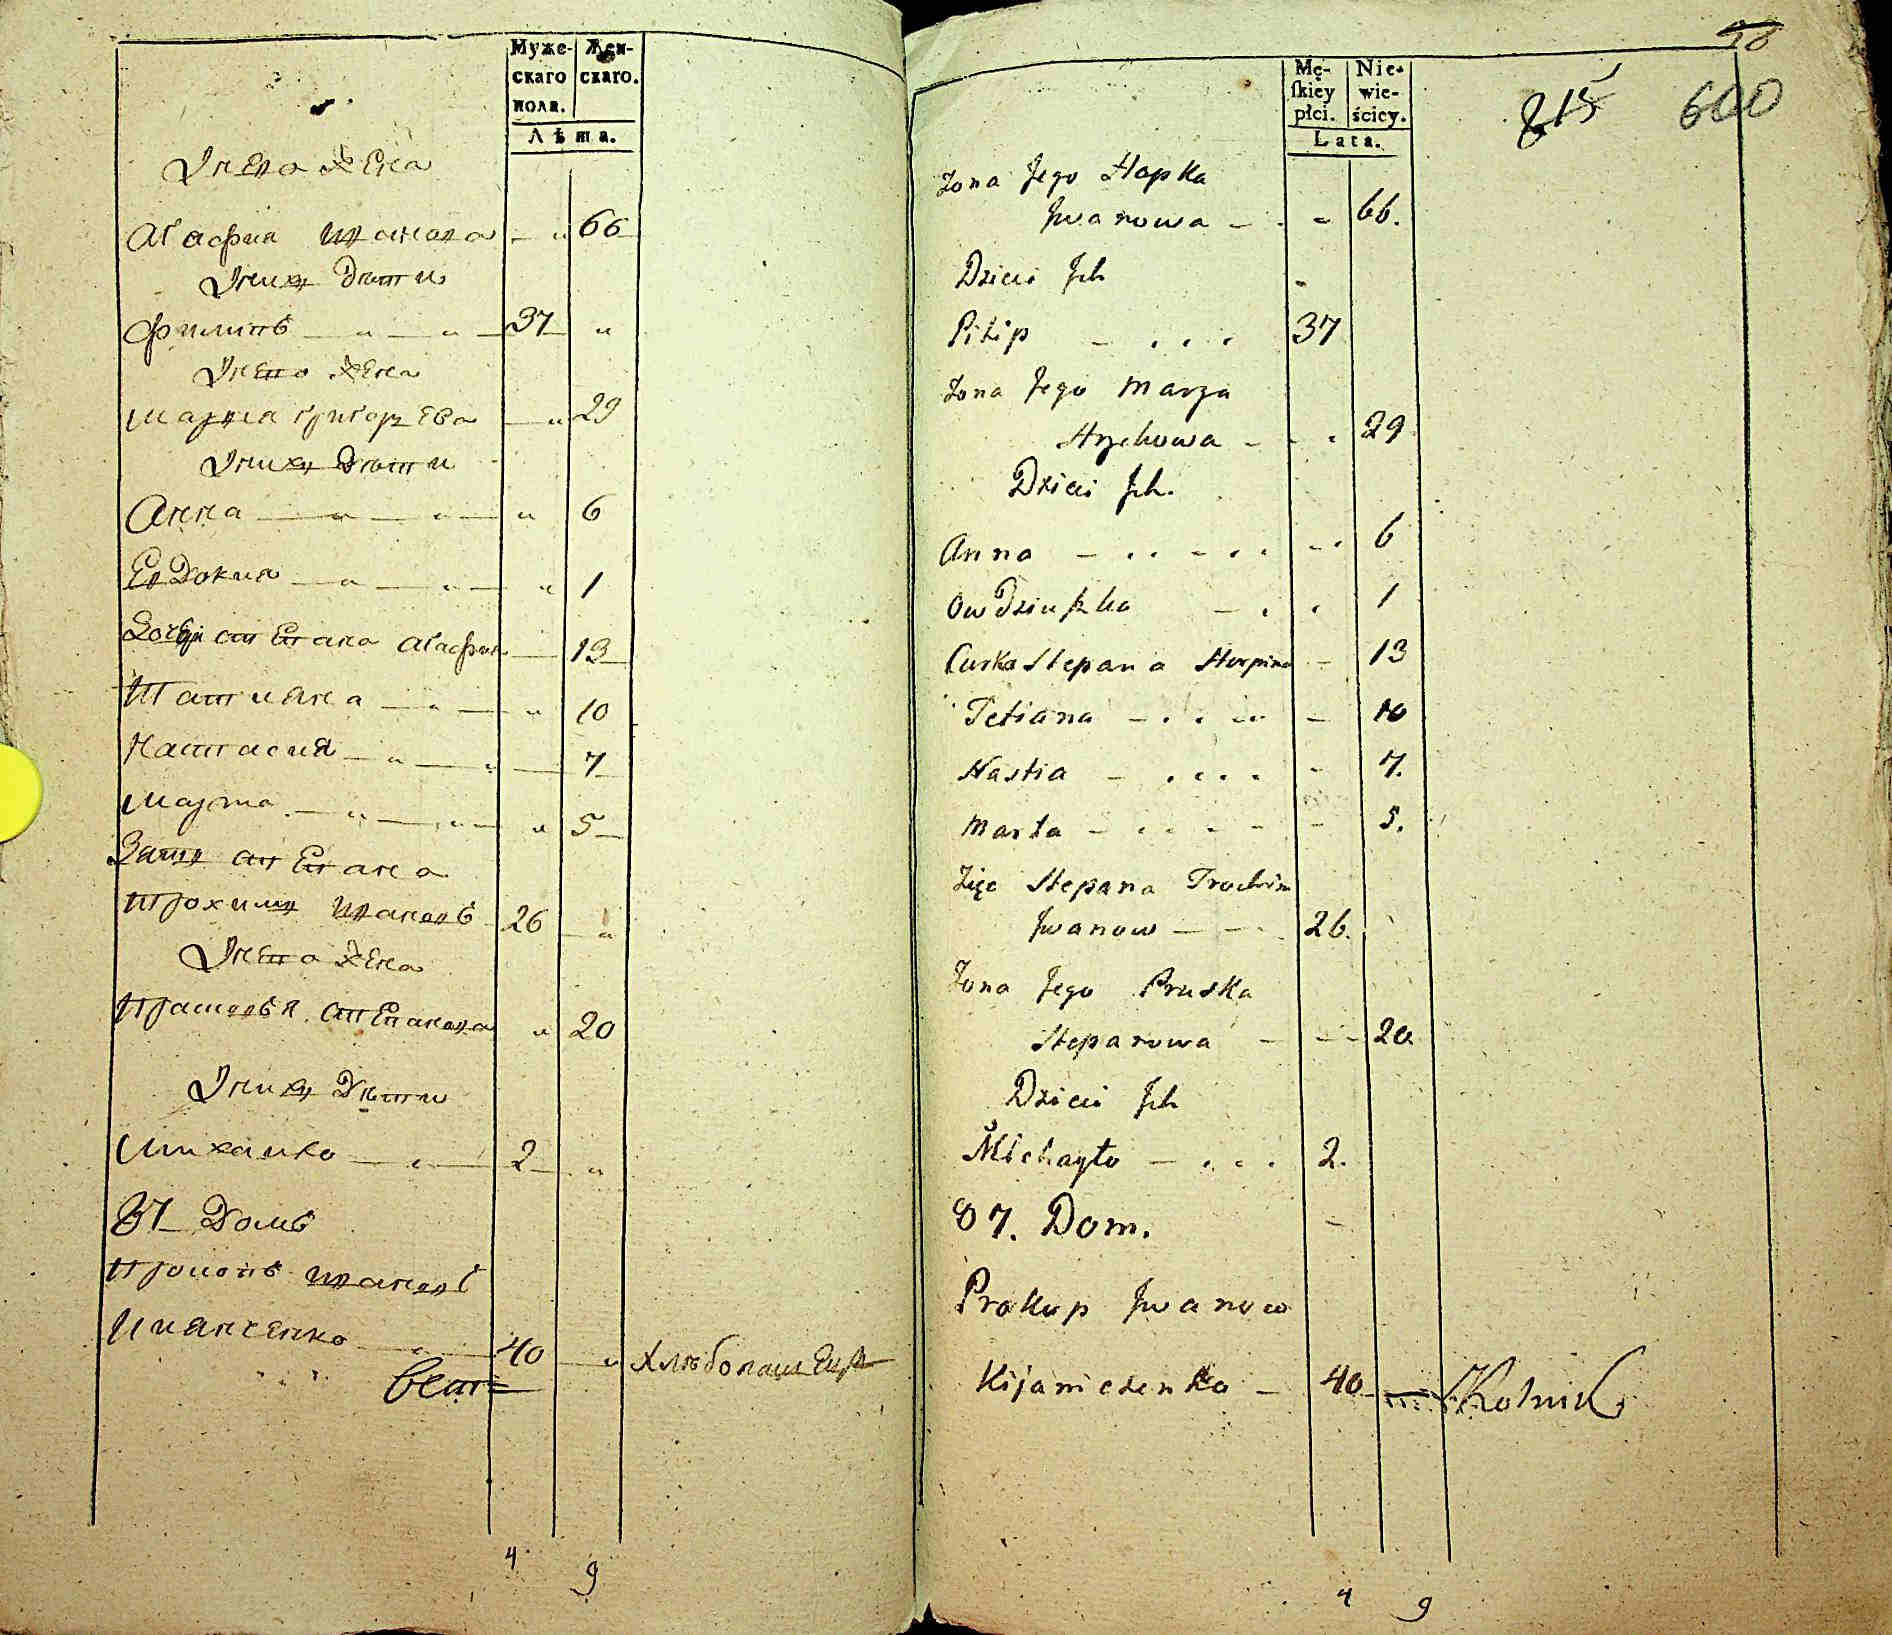 Муже-
скаго
пола.
Жен-
скаго.
Лѣта.
Онаго Жена
Агафия Иванова 66
Онихъ Дѣти
Филипъ 37
Онаго Жена
Мария Григорьева 29
Онихъ Дѣти
Анна 6
Евдокия 1
Дочери Степана Агафия 13
Татиана 10
Настасия 7
Марта 5
Зять Степана
Трохимъ Ивановъ 26
Онаго Жена
Прасковья Степанова 20
Онихъ Дѣти
Михайло 2
87 Домъ
Прокопъ Ивановъ
Киянченко 40 Хлѣбопашецъ
4 9
50
815 600
Mę-
ſkiey
płci.
Nie-
wie-
ściey.
Lata.
Żona Jego Hapka
Jwanowa 66.
Dzieci Jch
Pilip 37
Żona Jego Marya
Hrychowa 29
Dzieci Jch.
Anna 6
Owdziuszka 1
Curka Stepana Horpina 13
Tetiana 10
Nastia 7.
Marta 5.
Zięc Stepana Trochim
Jwanow 26.
Żona Jego Pruska
Stepanowa 20
Dzieci Jch
Michayło 2.
87. Dom.
Prokop Jwanow
Kijaniczenko 40 Rolnik
4 9